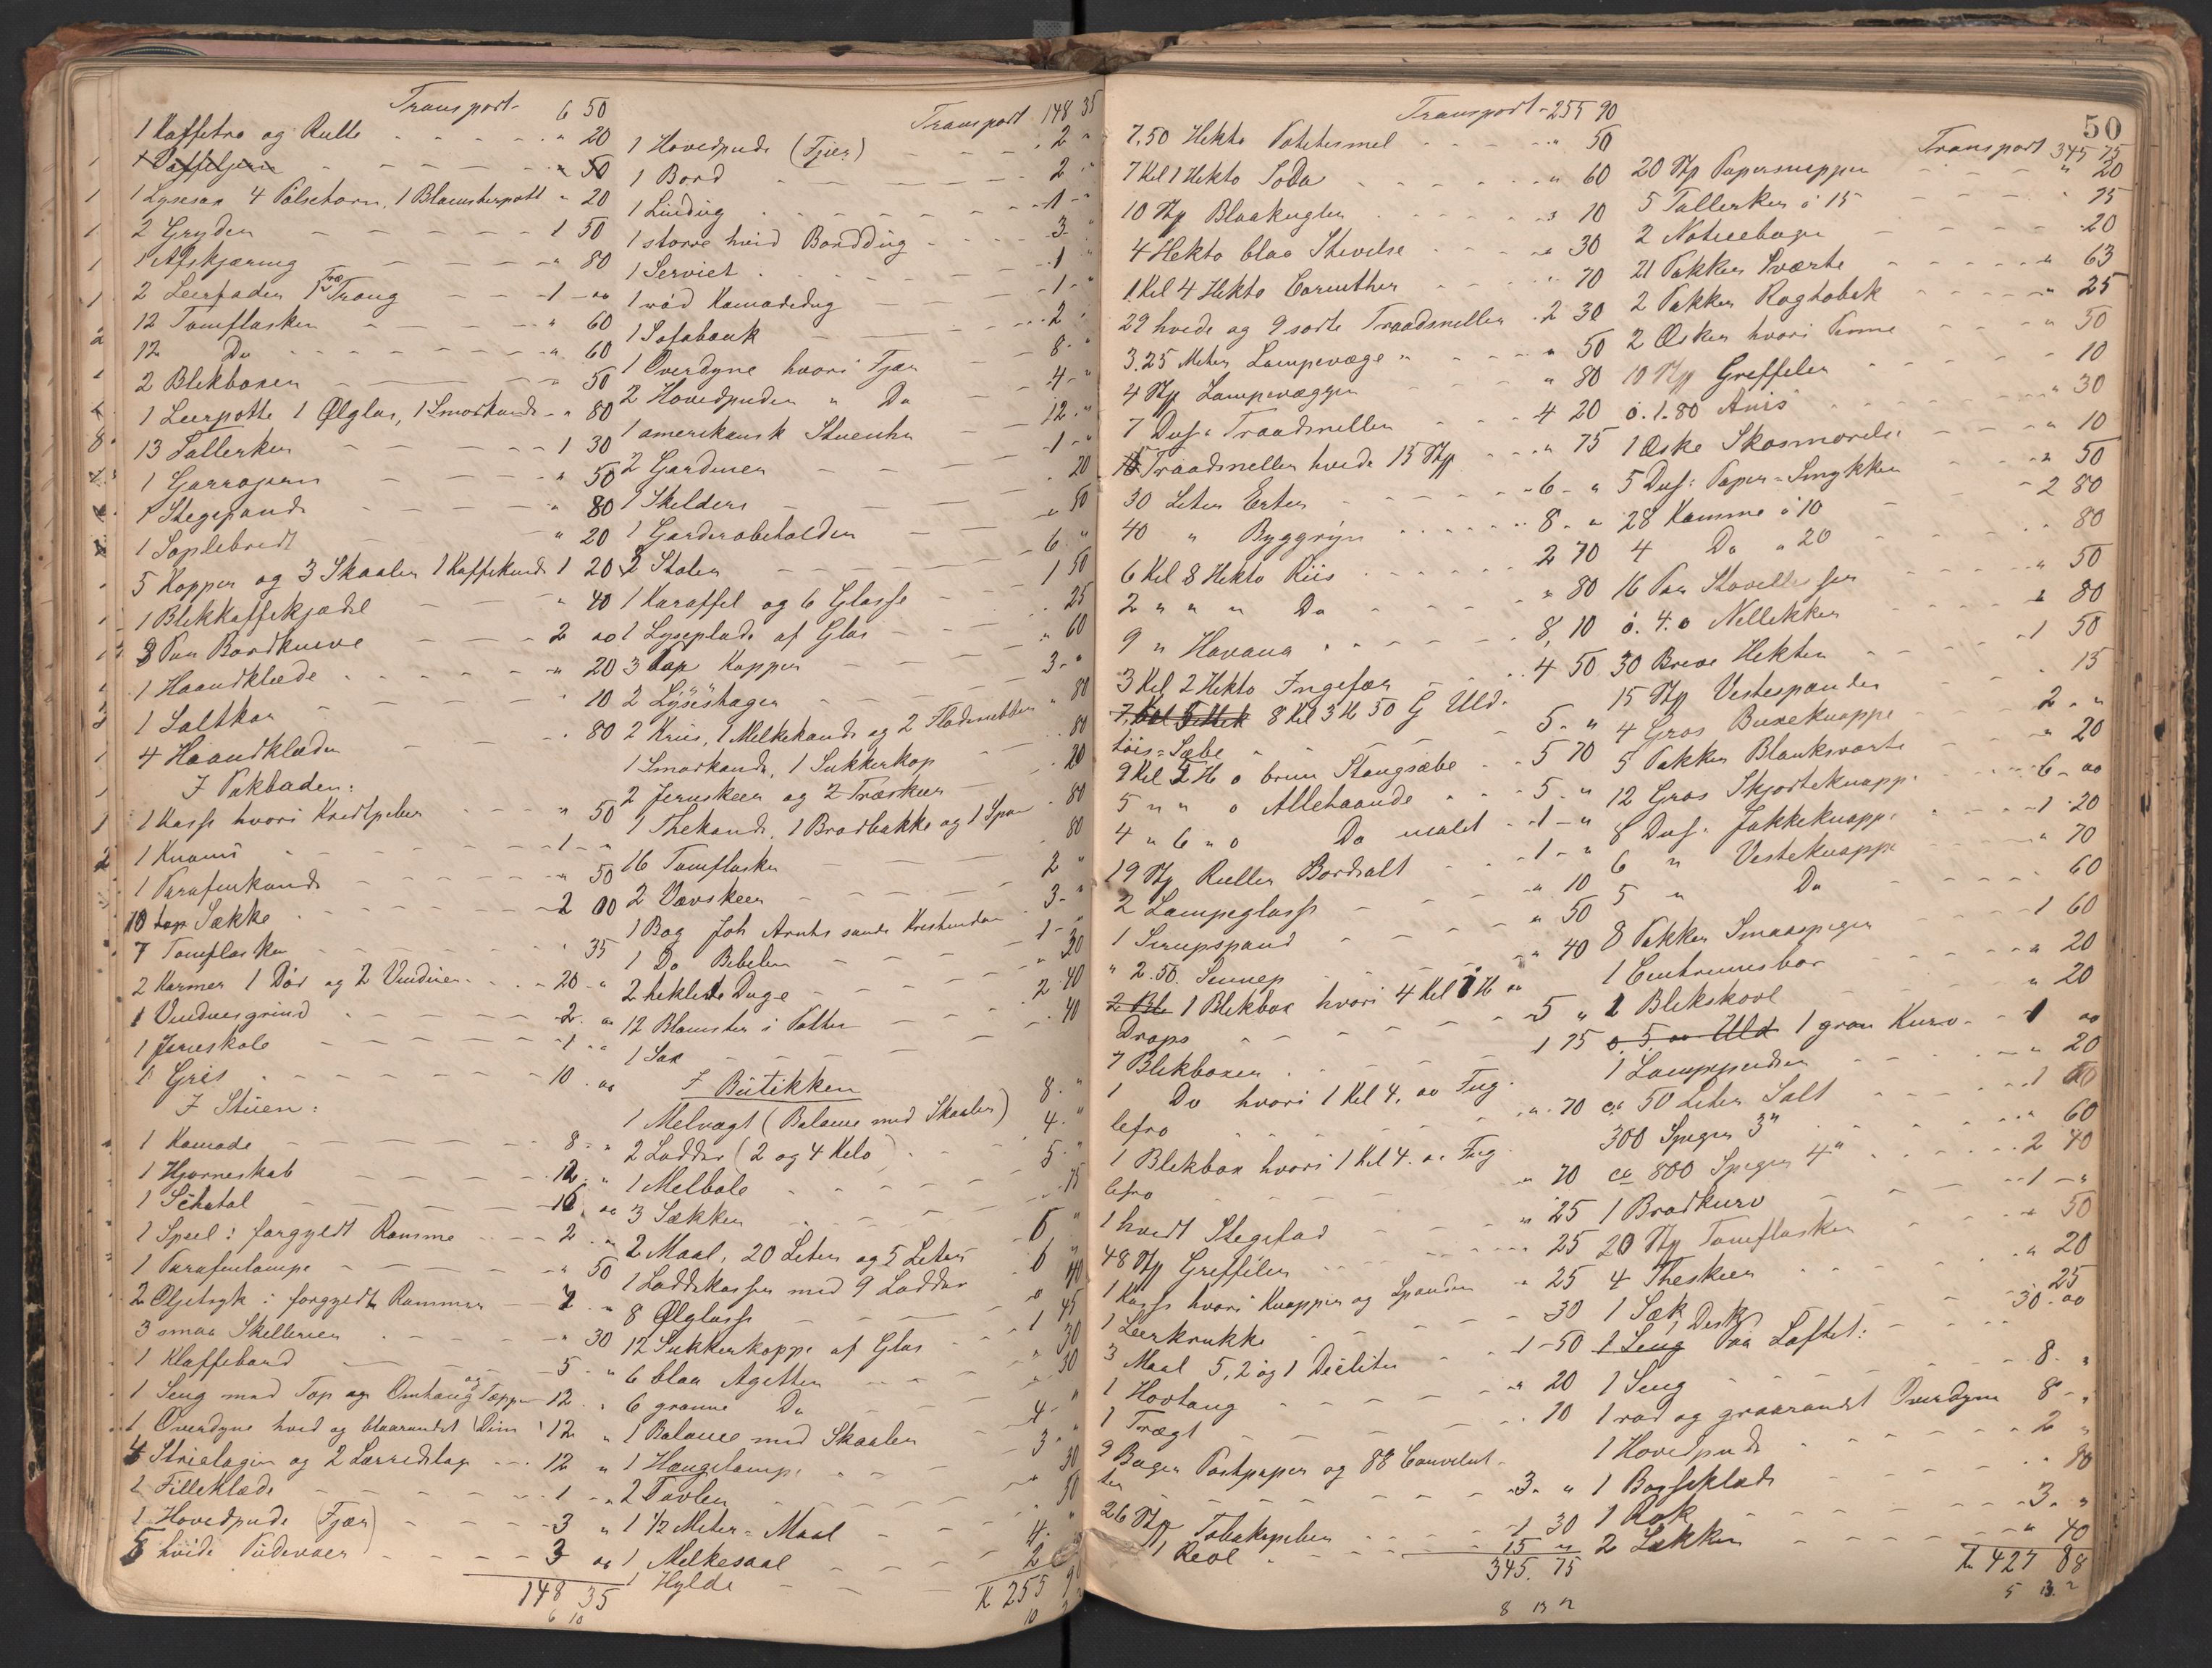 Transport 6 50
1 Kaffetra og Rulle " 20
1 Lysesax 4 Pølsehorn, 1 Blomsterpott " 20
2 Gryder 1 50
1 Afskjæring " 80
2 Leerfader 1 Træ Traug 1 "
12 Tomflasker " 60
12 Do " 60
2 Blekboxer " 50
1 Leerpotte 1 Ølglas, 1 Smorkande " 80
13 Tallerken 1 30
1 " 50
1 Stegepande " 80
1 " 20
5 Kopper og 3 Skaaler 1 Kaffekande 1 20
1 Blekkaffekjedel " 40
3 Par Bordknive 2 "
1 Haandklæde " 20
1 Saltkar " 10
4 Haandklæder " 80
I Pakboden:
1 Kasse hvori Kridtpiber " 50
1 1 "
1 Parafinkande " 50
10 Sække 2 00
7 Tomflasker " 35
2 Karmer 1 Dör og 2 Vinduer 20 "
1 Vinduesgrind 2 "
1 Jerneskole 1 "
1 Gris 10 "
I Stuen:
1 Komode 8 "
1 Hjorneskab 12 "
1 16 "
1 Speel i forgyldt Ramme 2 "
1 Parafinlampe " 50
2 Oljetryk i forgyldte Rammer "
3 smaa Skillerier " 30
1 Klaffebord 5 "
1 Seng med Top og Omhang og Tæpper 12 "
1 Overdyne hvid og blaarandet 12 "
4 Strielagen og 2 Lærredslag 12 "
1 Filleklæde 1 "
1 Hovedpude (Fjær) 3 "
5 hvide Pudevaer 3 "
148 35
6 10
Transport 148 35
1 Hovedpude (Fjær) 2 "
1 Bord 2 "
1 Lindug 1 "
1 storre hvid Borddug 3 "
1 Serviet 1 "
1 röd Komodedug 1 "
1 Sofabænk 2 "
1 Overdyne hvori Fjær 8 "
2 Hovedpuder " Do 4 "
1 amerikansk Stueuhr 12 "
2 Gardiner 1 "
1 Skilderi " 20
1 Garderobeholder " 50
2 Stoler 6 "
1 Karaffel og 6 Glasse 1 50
1 Lyseplade af Glas " 25
3 Kopper " 60
2 Lysestager 3 "
2 Krus, 1 Melkekande og 2 " 80
1 Smorkande, 1 Sukkerkop " 80
2 Jernskeer og 2 Træskeer " 20
1 Thekande, 1 Brodbakke og 1 " 80
16 Tomflasker " 80
2 2 "
1 Bog Joh Arndts sande Kristendom 3 "
1 Do Bibelen 1 "
2 heklede Duge " 30
12 Blomster i Potter 2 40
1 Sax " 40
I Butikken
1 Melvægt (Balance med Skaaler) 8 "
2 Lodder (2 og 4 Kilo) 4 "
1 Melbale 5 "
3 Sækker " 75
2 Maal, 20 Liter og 5 Liter
1 Loddekasse med 9 Lodder
8 Ølglasse " 40
12 Sukkerkoppe af Glas 1 45
6 blaa Agetter " 30
6 gronne Do " 30
1 Balance med Skaaler 4 "
1 Hængelampe 3 "
2 Tavler " 30
1 1/2 Meter = Maal " 50
1 4 "
1 Hylde 2
K 255 90
Transport 255 90
7,50 Hekto Potetesmel " 50
7 Kil 1 Hekto Soda " 60
10 Stp Blaakugler " 10
4 Hekto blaa Stivelse " 30
1 Kil 4 Hekto Corinther " 70
29 hvide og 9 sorte Traadsneller 2 30
3.25 Meter Lampevæge " 50
4 Stp Lampevægger " 80
7 Dus. Traadsneller 4 20
Traadsneller hvide 15 Stp " 75
30 Liter Erter 6 "
40 " Byggryn 8 "
6 Kil 8 Hekto Riis 2 70
2 " " " Do " 80
9 " Havana 8, 10
3 Kil 2 Hekto Ingefær 4 50
7. Kil 5 Hek 8 Kil 3 H 50 G Uld-
töis=Sæbe 5 "
9 Kil 5 H o brun Stangsæbe 5 70
5 " " o Allehaande 5 "
4 " 6 " o Do malet 1 "
19 Stp Ruller Bordsalt 1 "
2 Lampeglasse " 10
1 Sirupspand " 50
" 2.50. Sennep " 40
2 Bl. 1 Blekbox hvori 4 Kil 1 H "
Drops 5 "
7 Blekboxer 1 75
1 Do hvori 1 Kil 4. " Fug
lefro " 70
1 Blekbox hvori 1 Kil 4. " Fug
lefro " 70
1 hvidt Stegefad " 25
48 Stp Greffeler 25
1 Kasse hvori Knapper og Spender " 25
1 Leerkrukke 30
3 Maal 5, 2 og 1 Deciliter 1 50
1 Hovtang " 20
1 Tragt " 10
9 Boger Postpapir og 88 Convolut-
ter 3 "
26 Stp Tobakspiber 1 30
1 Reol 15 "
345. 75
8 13 2
50
Transport 345 75
20 Stp " 20
5 Tallerken à 15 75
2 Noticeboger 20
21 Pakker Sværte " 63
2 Pakker Rogtobak " 25
2 Æsker hvori Penne " 50
10 Stp Greffeler 10
o. 1.80 Anis " 30
1 Æske Skosmorelse " 10
5 Dus. Papir=Smykker " 50
28 Kamme à 10 2 80
4 Do " 20 " 80
16 Par " 50
o. 4. o Nellekker " 80
30 Breve Hekter 1 50
15 Stp Vestespænder " 15
4 Gros Buxeknappe 2 "
5 Pakker Blanksværte " 20
12 Gros Skjorteknappe 6 "
8 Dus. Jakkeknappe 1 20
6 " Vesteknappe " 70
5 " Do " 60
8 Pakker Smaaspiger 1 60
1 Centrumsbor " 20
1 Blekskovl " 20
o. 5. " Uld 1 gron Kurv 1 "
1 " 20
ca 50 Liter Salt 1
300 Spiger 3" " 60
ca 800 Spiger 4" 2 40
1 Brodkurv 1 "
20 Stp Tomflasker " 50
4 Theskeer " 20
1 Sæk, 25
1 Desk 30. "
1 Seng Paa Loftet:
1 Seng 8 "
1 rod og graarandet Overdyne 8 "
1 Hovedpude 2 "
1 " 80
1 Rok 3 "
2 Sækker " 40
K 427 88
5 13 2